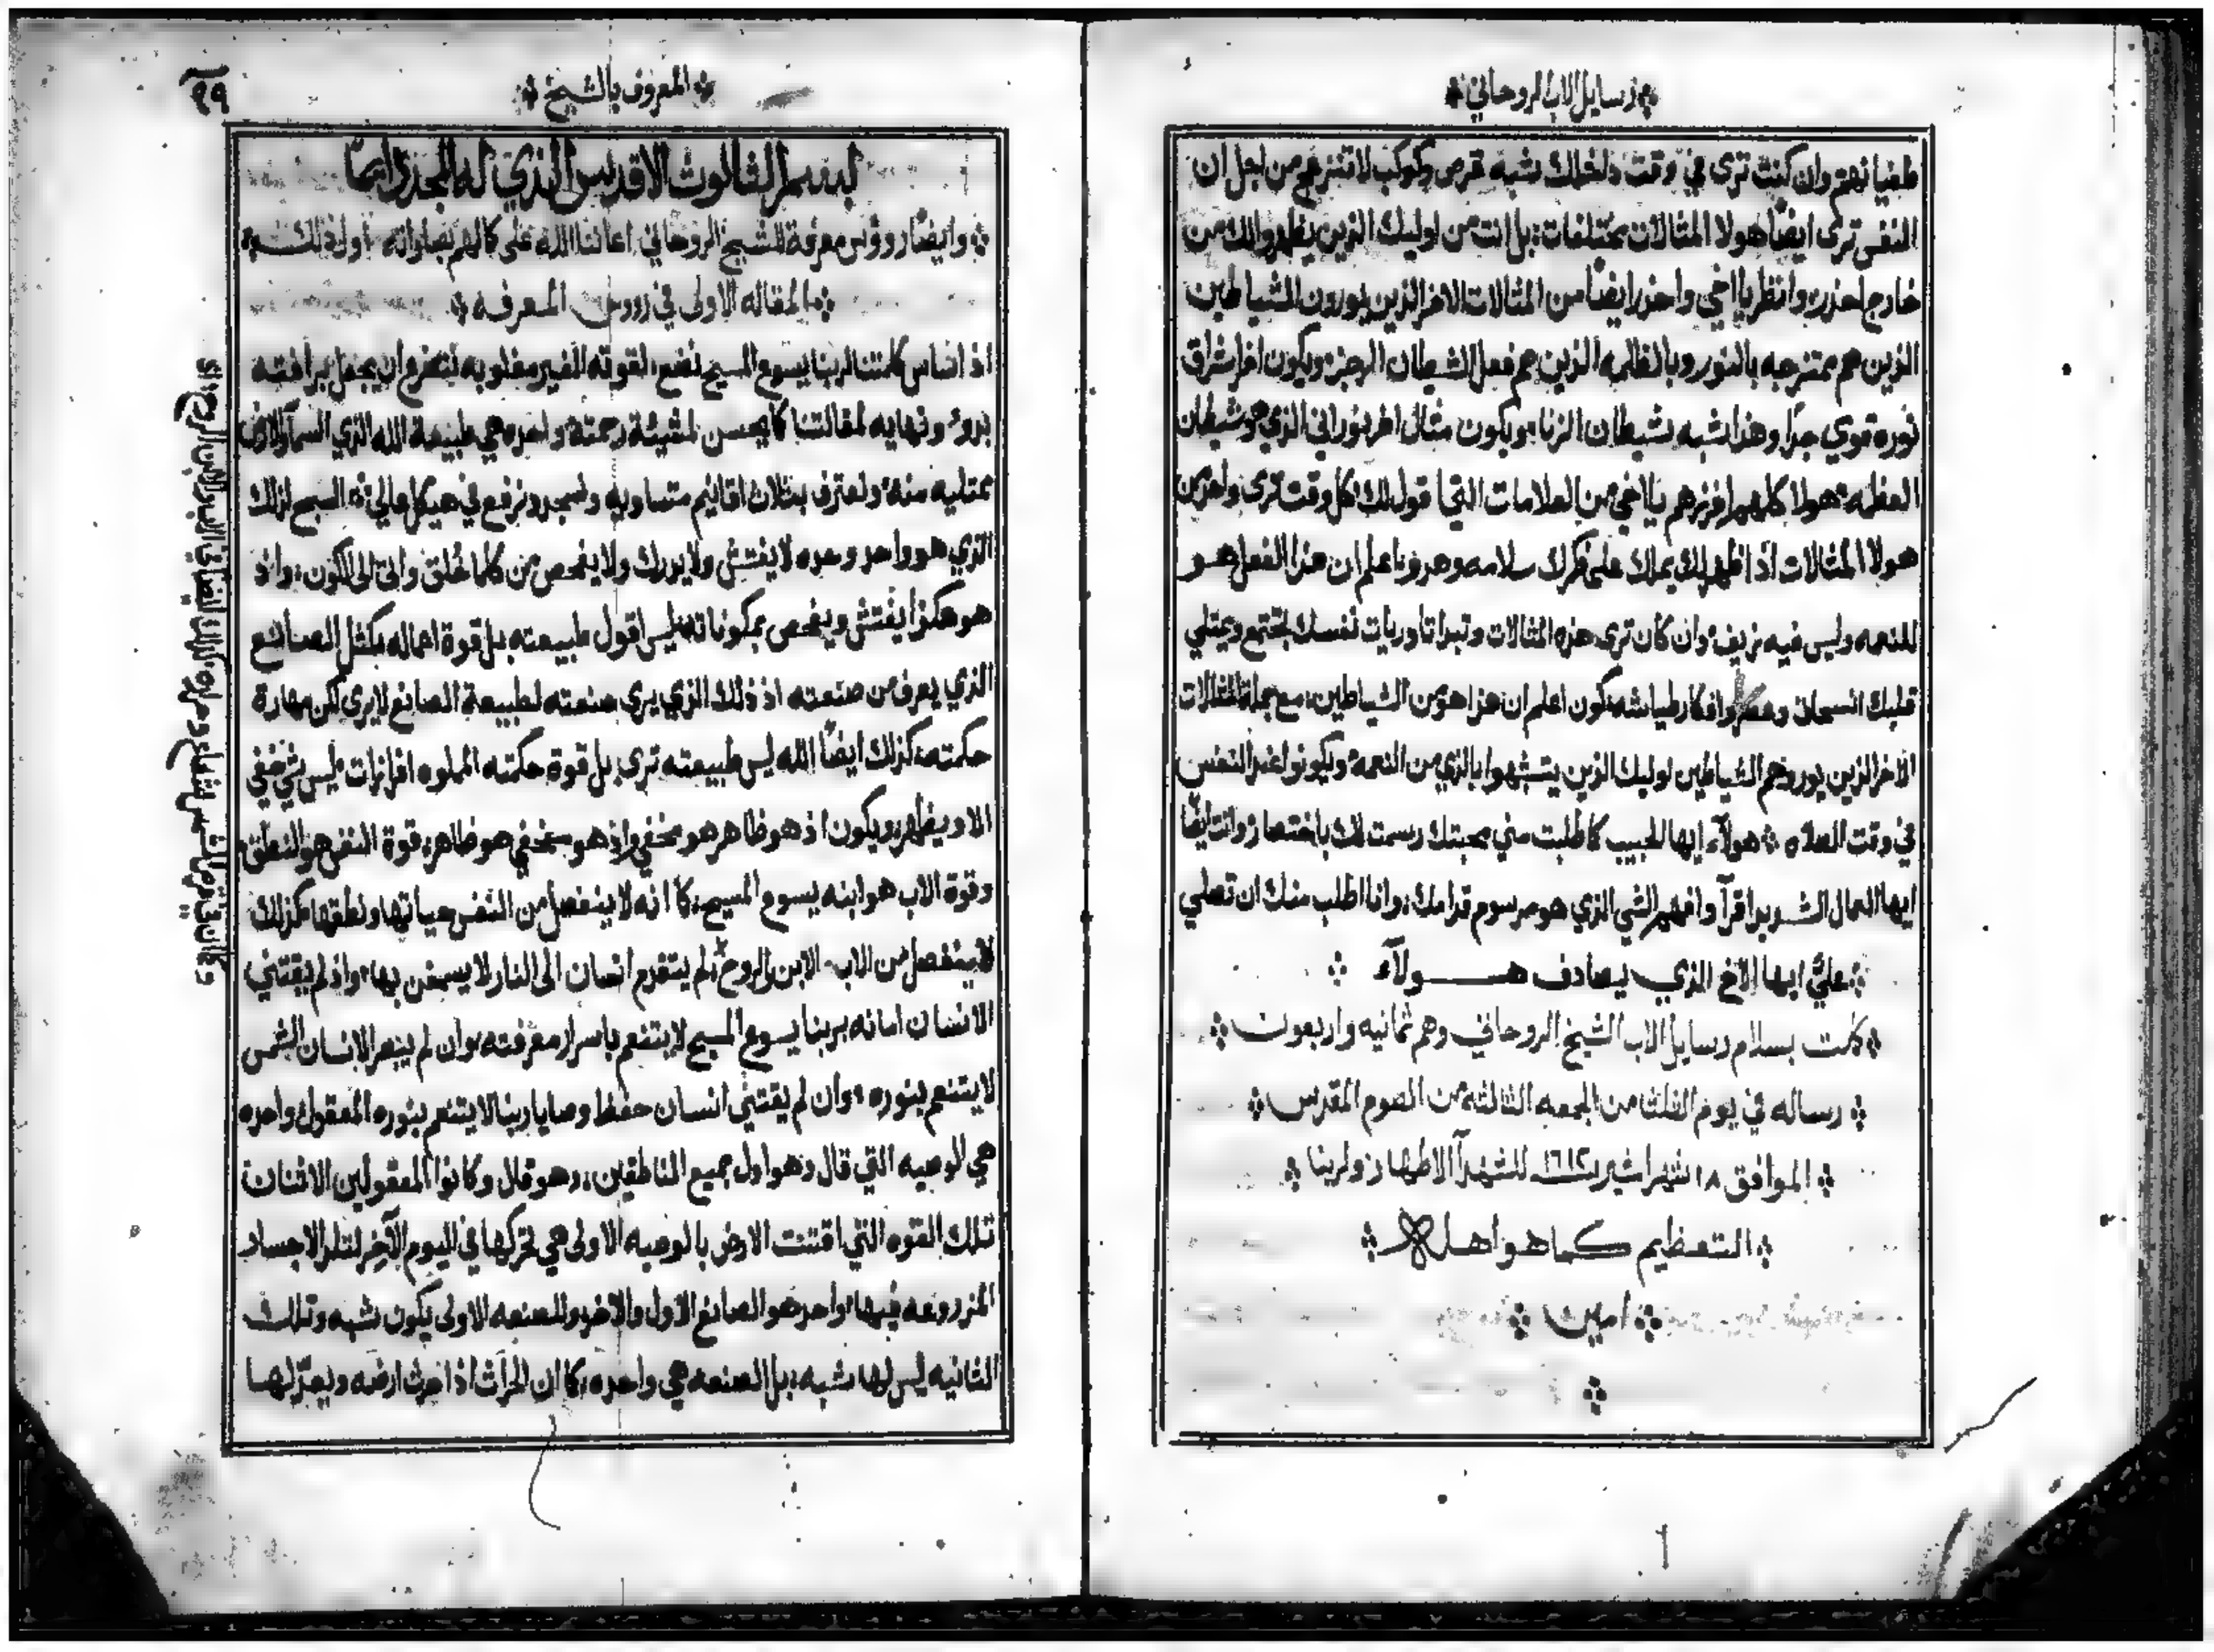 رسايل الاب الروحاني
طغيانهم وان كنت تري في وقت داخلك شبه قرص وكوكب لا تنزعج من اجل ان
النفس تري ايضًا هولا المثالات مختلفات: بل انت من اوليك الذين يظهروا لك من
خارج احذر: وانظر يا اخي واحذر ايضًا من المثالات الاخر الذين يورون الشياطين
الذين هم ممتزجه بالنور وبالظلمه الذين هم فعل الشيطان الرجز ويكون اخر اشراق
نوره قوي جدًا وهذا شبه شيطان الزنا ويكون مثال اخر نوراني الذي هو شيطان
العظمه هولا كلهم افرزهم يا اخي من العلامات التي اقول لك كل وقت تري واحد من
هولا المثالات اذا ظهر لك يملك علي فكرك سلامه وهدو فاعلم ان هذا الفعل هو
للنعمه وليس فيه زيف وان كان تري هذه المثالات وتبدا تاوريات نفسك تجتمع ويمتلي
قلبك انسحاق وافكار طياشه تكون اعلم ان هذا هو من الشياطين: مع جملة المثالات
الاخر الذين يوروهم الشياطين اوليك الذين يتشبهوا بالذي من النعمه ويكونوا عند النفس
في وقت الصلاه هولآء ايها الحبيب كما طلبت مني محبتك رسمت لك باختصار وانت ايضًا
ايها العمال الشـ اقرآ وافهم الشي الذي هو مرسوم قدامك: وانا اطلب منك ان تصلي
عليّ ايها الاخ الذي يصادف هـــولآء
كملت بسلام رسايل الاب الشيخ الروحاني وهم ثمانيه واربعون
رساله في يوم الثلث من الجمعه الثالثه من الصوم المقدس
الموافق ١٨ شهر امشير ١٦١٢ للشهدآ الاطهار ولربنا
التعظيم كـما هو اهلـه
امين
المعروف بالشيخ
٢٩
بسم الثالوث الاقدس الذي له المجد دايما
وايضًا روؤس معرفة للشيخ الروحاني اعاننا الله علي كمالهم بصلواته اول ذلك
المقاله الاولي في رووس المعرفه
اذ اساس كلمتنا لربنا يسوع المسيح نضع لقوته الغير مغلوبه نتضرع ان يجعل برافته
بدو ونهايه لمقالتنا كما يحسن لمشيئة رحمته واحده هي طبيعة الله الذي السمآ والارض
ممتليه منه ونعترف بثلاث اقانيم متساويه ونسجد ونرفع في هيكل السبح لذلك
الذي هو واحد وحده لا يفتش ولا يدرك ولا يفحص من كلما خلق واتى الى الكون: واذ
هو هكذا يفتش ويفحص بمكوناته ليس اقول طبيعته بل قوة اعماله بمثل الصانع
الذي يعرف من صنعته اذ ذلك الذي يري صنعته لطبيعة الصانع لا يري لكن مهارة
حكمته: كذلك ايضًا الله ليس طبيعته تري بل قوة حكمته المملوه افرازات ليس شي خفي
الا ويظهر: ويكون اذ هو ظاهر هو مخفي واذ هو مخفي هو ظاهر: قوة النفس هو النطق
وقوة الاب هو ابنه يسوع المسيح: كما انه لا ينفصل من النفس حياتها ونطقها كذلك
لا ينفصل من الاب الابن والروح: لم يتقدم انسان الي النار لا يسخن بها: واذ لم يقتني
الانسان امانه بربنا يسوع المسيح لا يتنعم باسرار معرفته وان لم يبصر الانسان الشمس
لا يتنعم بنوره وان لم يقتني انسان حفظ وصايا ربنا لا يتنعم بنوره المعقول واحده
هي الوصيه التي قال وهو اول جميع الناطقين: وهو قال وكانوا المعقولين الاثنان
تلك القوه التي اقتنت الارض بالوصيه الاولي هي تحركها في اليوم الآخر لتلد الاجساد
المزروعه فيها واحد هو الصانع الاول والاخر وللصنعه الاولي يكون شبه وتلك
الثانيه ليس لها شبه: بل الصنعه هي واحده: كما ان الحرات اذا حرث ارضه ويعدّ لها